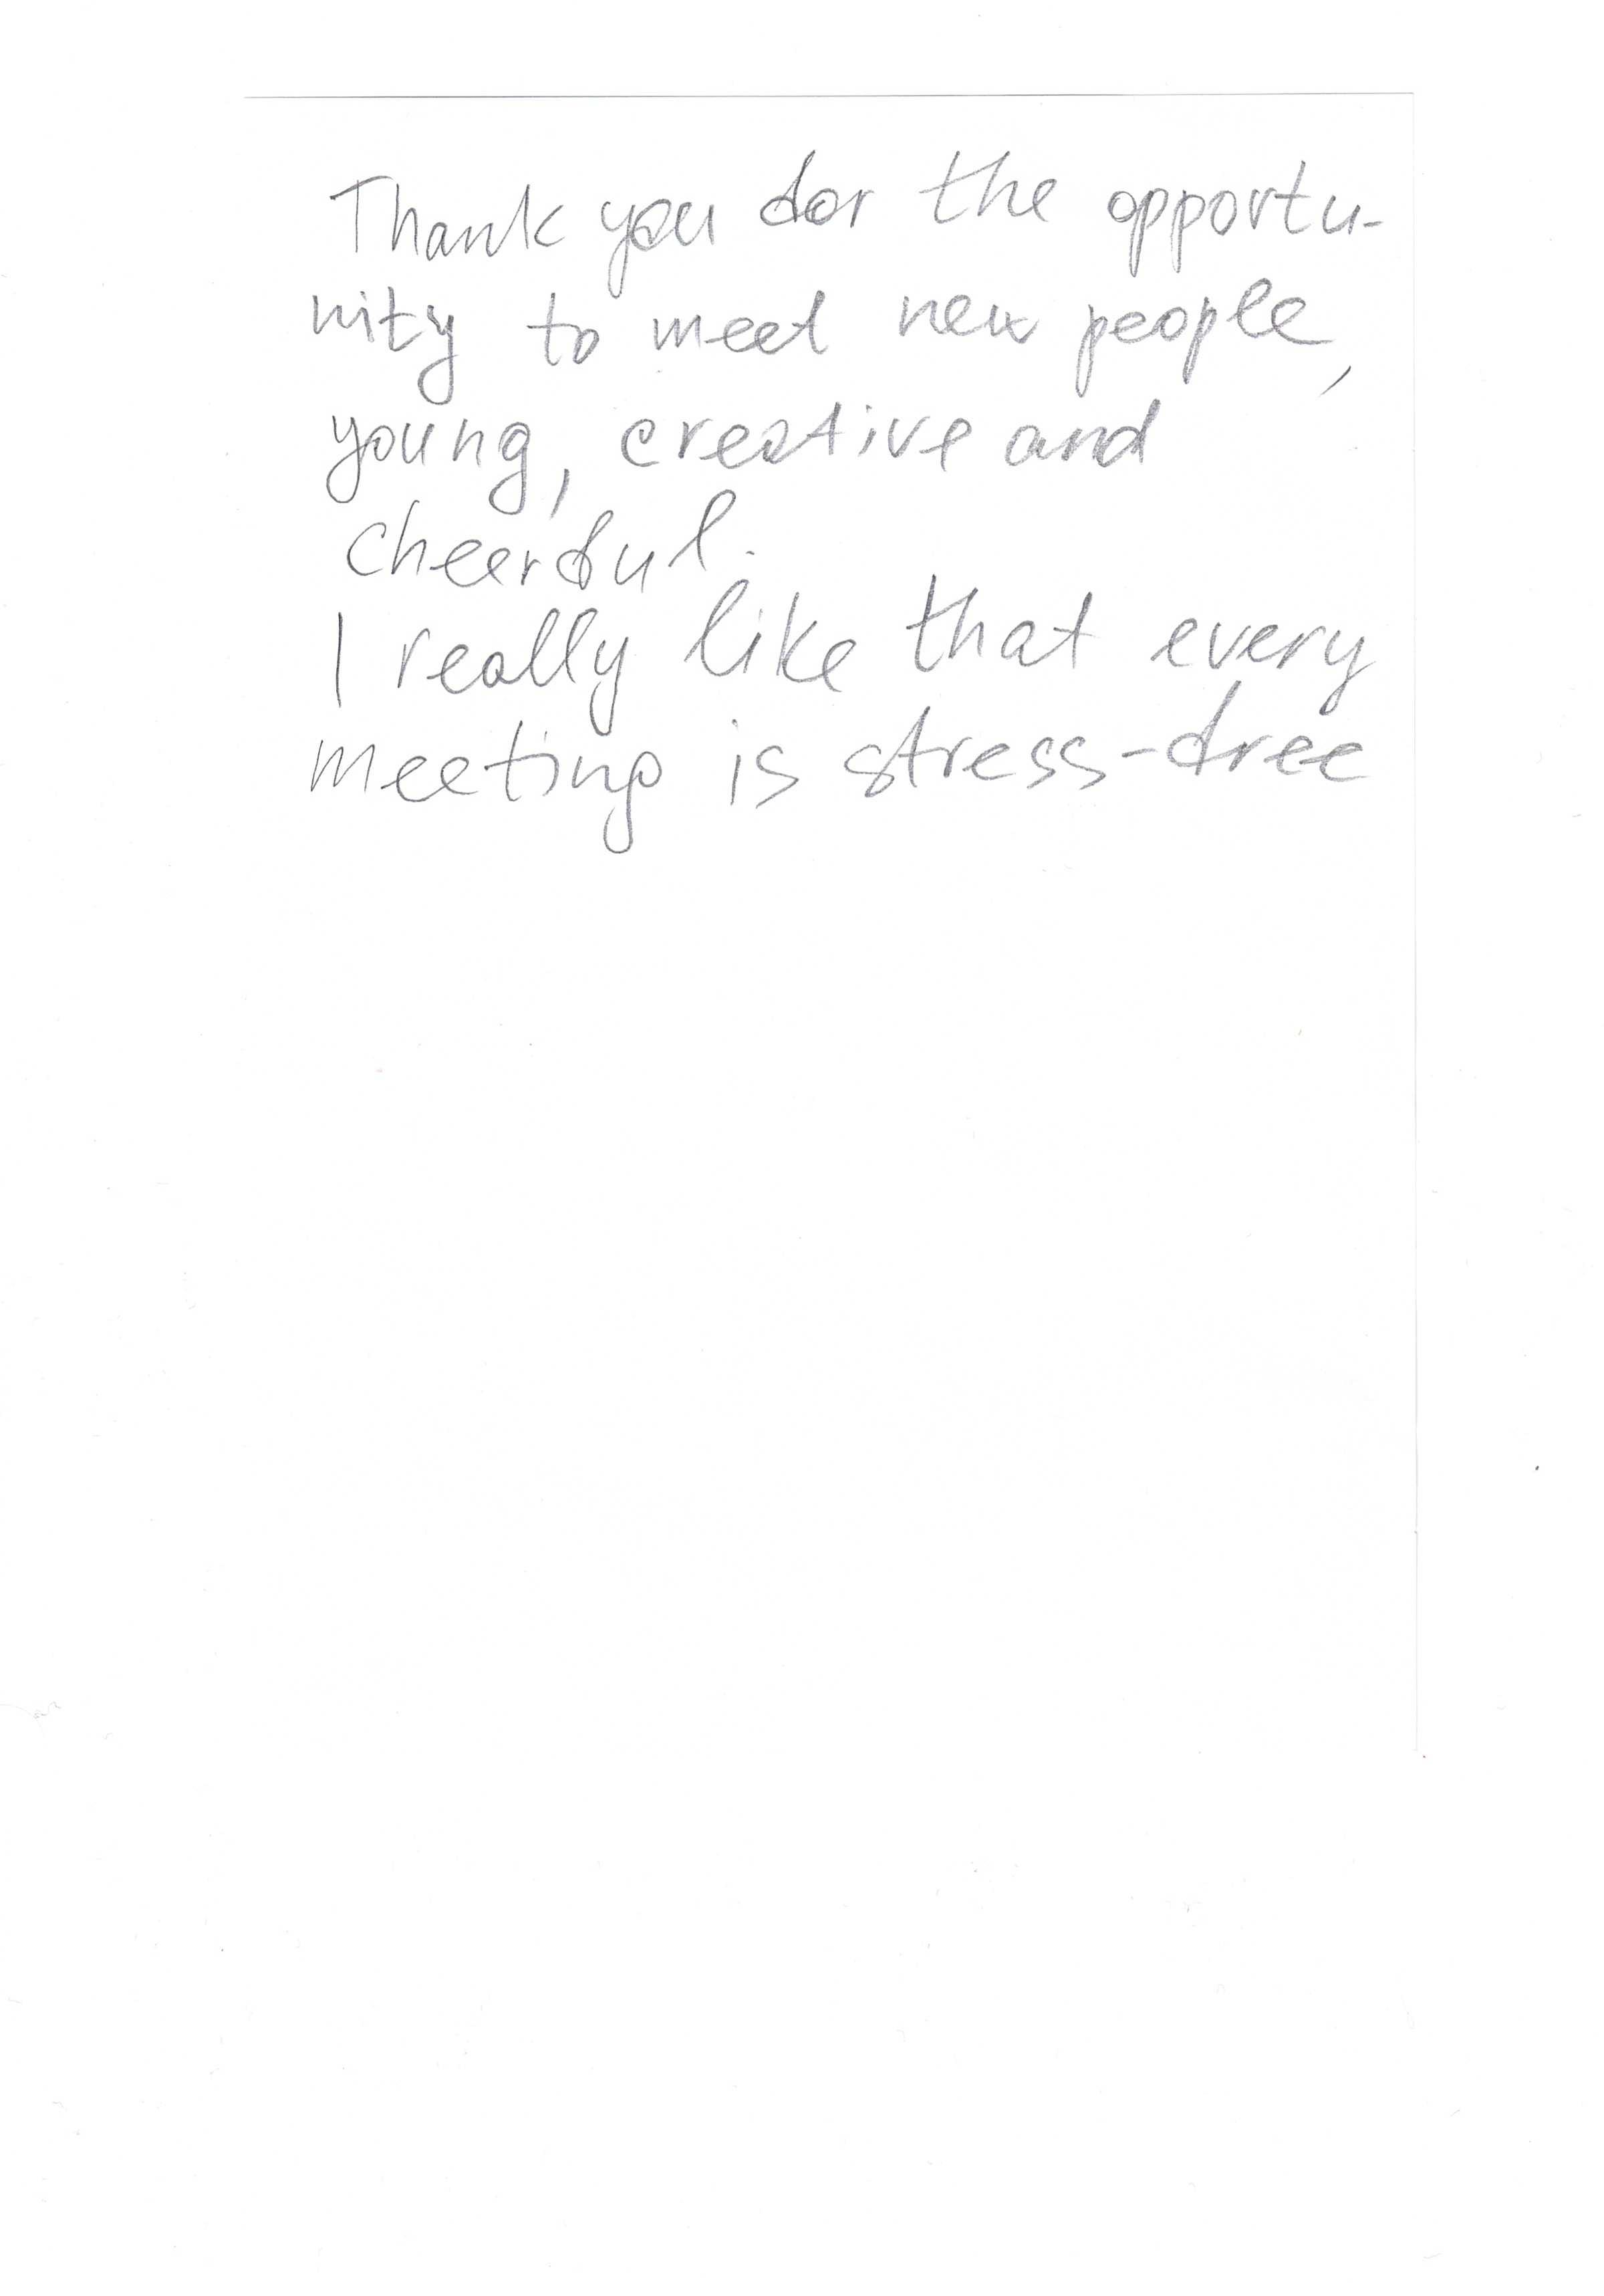 Thank you for the opportu-
nity to meet new people,
young, creative and
cheerful.
I really like that every
meeting is stress-free